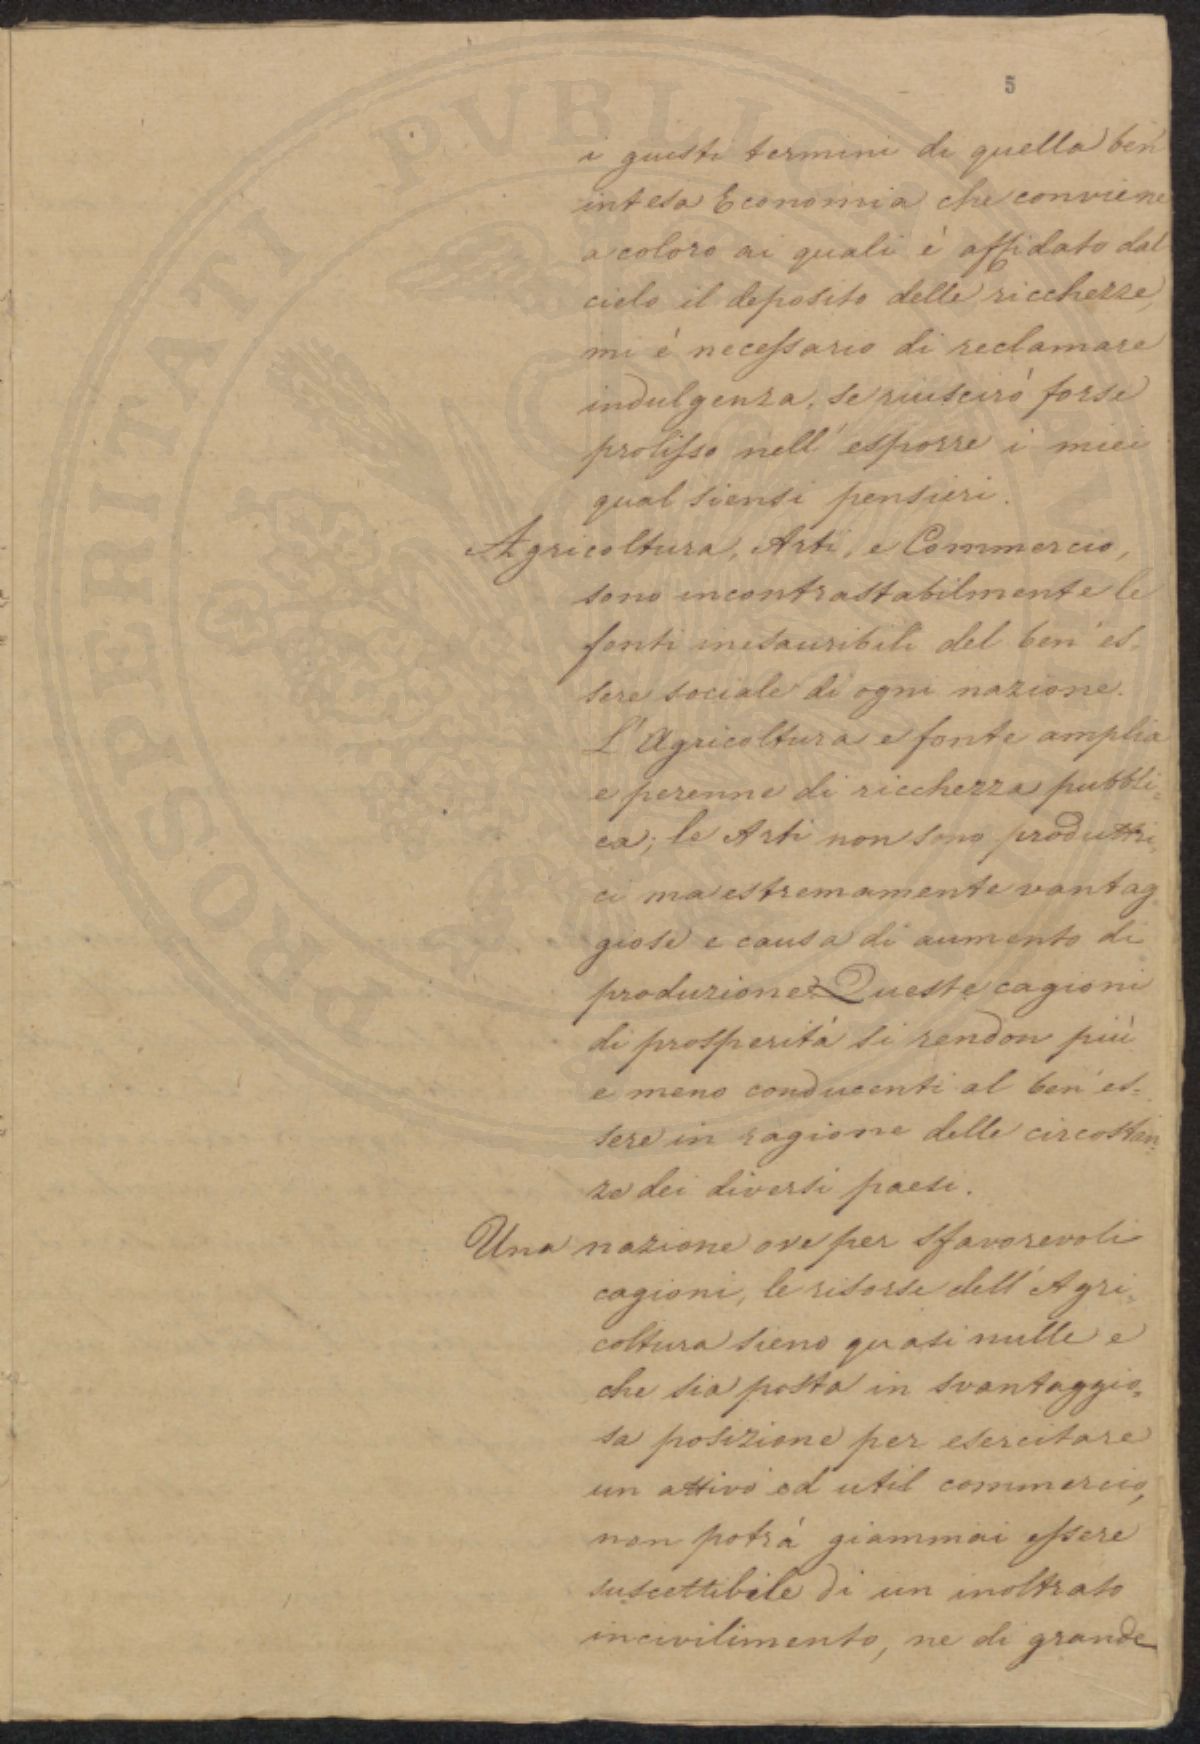 5
i giusti termini di quella ben
intesa Economia che conviene
a coloro ai quali è affidato dal
cielo il deposito delle ricchezze,
mi è necessario di reclamare
indulgenza, se riuscirò forse
prolisso nell' esporre i miei
qual siensi pensieri.
Agricoltura, Arti, e Commercio,
sono incontrastabilmente le
fonti inesauribili del ben' es-
sere sociale di ogni nazione.
L'Agricoltura e fonte amplia
e perenne di ricchezza pubbli=
ca; le Arti non sono produttri=
ci ma estremamente vantag
giose e causa di aumento di
produzione. Queste cagioni
di prosperità si rendon più
e meno conducenti al ben' es=
sere in ragione delle circostan=
ze dei diversi paesi.
Una nazione ove per sfavorevoli
cagioni, le risorse dell' Agri=
coltura sieno quasi nulle e
che sia posta in svantaggio=
sa posizione per esercitare
un attivo ed util commercio,
non potrà giammai essere
suscettibile di un inoltrato
incivilimento, ne di grande
PROSPERITATI PUBLICAE